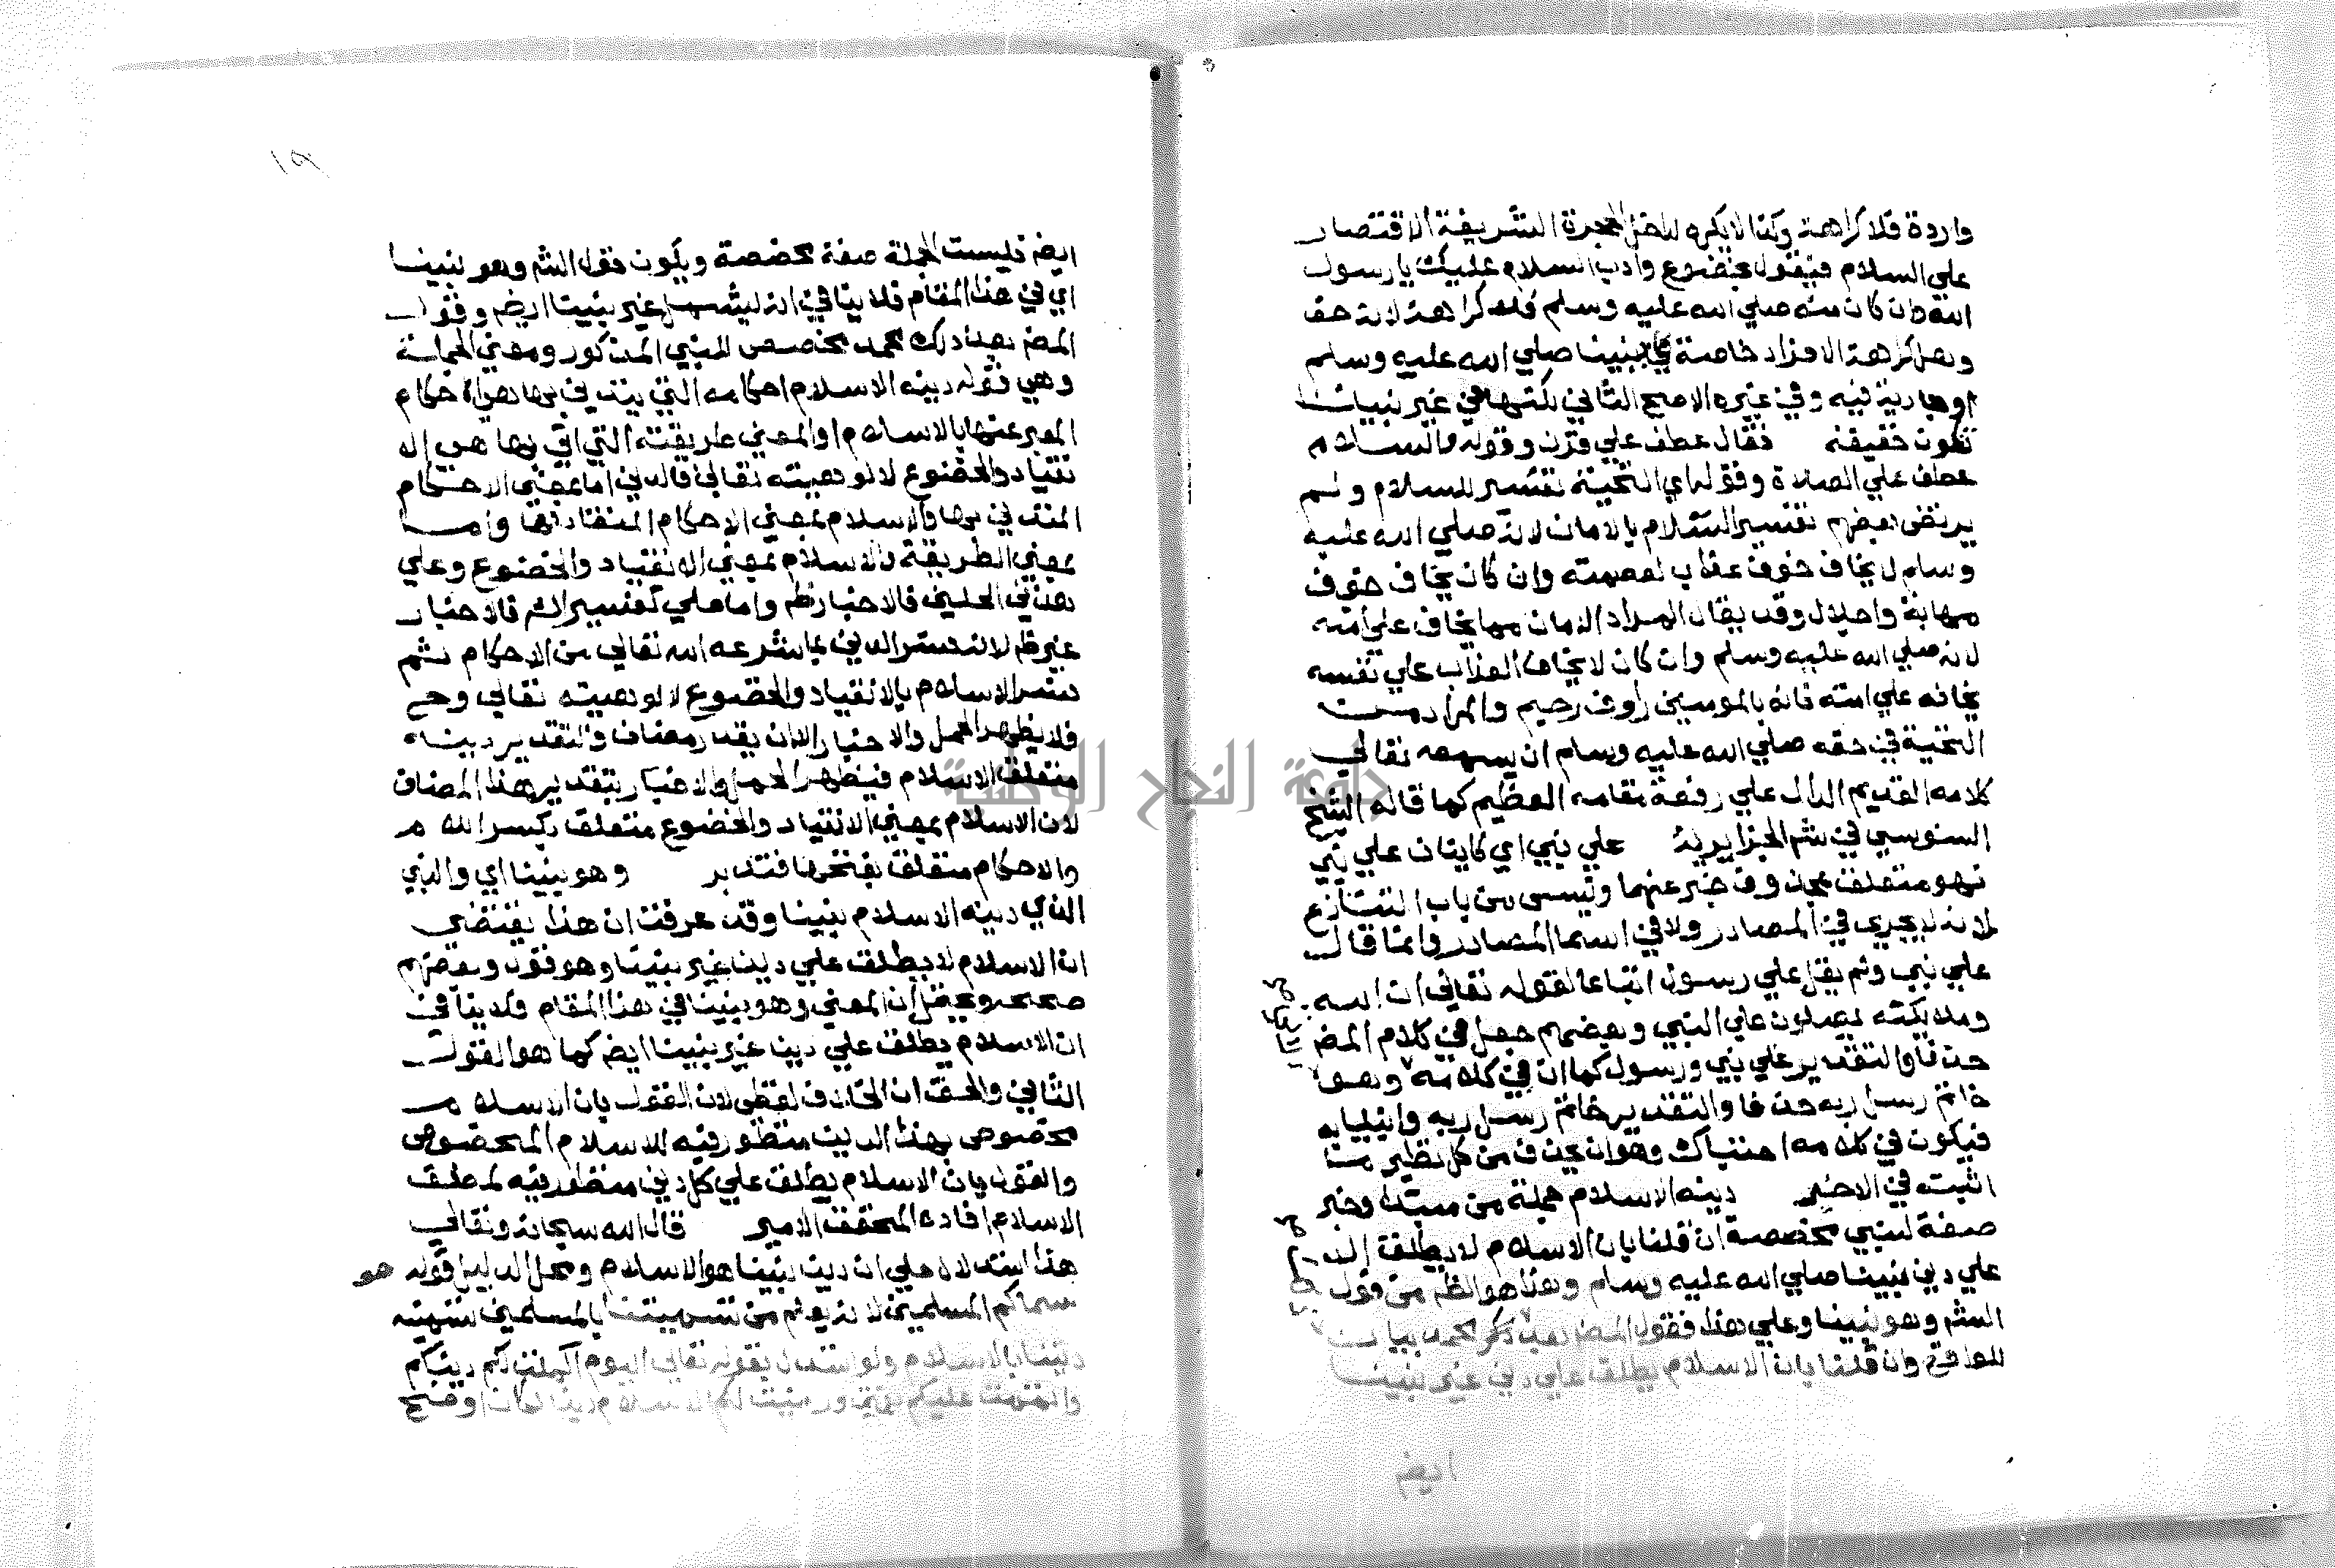 واردة فلا كراهة وكذا لا يكره لداخل الحجرة الشريفة الاقتصار
علي السلام فيقول بخضوع وادب السلام عليك يا رسول
الله وان كان منه صلي الله عليه وسلم فلا كراهة لانه حقه
وهل كراهة الافراد خاصة بنبينا صلي الله عليه وسلم
او جارية فيه وفي غيره الاصح الثاني لكنها في غير نبينا
تكون خفيفة فقال عطف علي وقوله والسلام
عطف علي الصلاة وقوله اي التحية تفسير للسلام ولم
يرتض بعضهم تفسير السلام بالامان لانه صلي الله عليه
وسلم لا يخاف خوف عقاب لعصمته وان كان يخاف خوف
مهابة واجلال وقد يقال المراد الامان مما يخاف علي امته
لانه صلي الله عليه وسلم وان كان لا يخاف العذاب علي نفسه
يخافه علي امته فانه بالمومنين روف رحيم والمراد من
التحية في حقه صلي الله عليه وسلم ان يسمعه تعالي
كلامه القديم الدال علي رفعة مقامه العظيم كما قاله الشيخ
السنوسي في شم الجزايرية علي نبي اي كاينان علي نبي
فهو متعلق بمحذوف خبر عنهما وليس من باب التنازع
لانه لا يجري في المصادر ولا في اسما المصادر وانما قال
علي نبي ولم يقل علي رسول اتباعا لقوله تعالي ان الله
وملايكته يصلون علي النبي وبعضهم جعل في كلام المض
حذفا والتقدير علي نبي ورسول كما ان في كلامه وهو
خاتم رسل ربه حذفا والتقدير خاتم رسل ربه وانبيايه
فيكون في كلامه احتباك وهو ان يحذف من كل نظير ما
اثبته في الاخير دينه الاسلام جملة من مبتدا وخبر
صفة لنبي مخصصة ان قلنا بان الاسلام لا يطلق الا
علي دين نبينا صلي الله عليه وسلم وهذا هو الظم من قول
الشم وهو نبينا وعلي هذا فقول المض بعد ذكر محمد بيان
للواقع وان قلنا بان الاسلام يطلق علي دين غير نبينا
ايضم
ايضم فليست الجملة صفة مخصصة ويكون قول الشم وهو نبينا
اي في هذا المقام فلا ينافي انه ليشمل غير نبينا ايضم وقول
المض بعد ذلك محمد مخصص للنبي المذكور ومعني الجملة
وهي قوله دينه الاسلام احكامه التي يتدين بها هي الاحكام
المعبر عنها بالاسلام او المعني طريقته التي اتي بها هي الا
نقياد والخضوع لالوهيته تعالي فالدين اما بمعني الاحكام
المتدين بها والاسلام بمعني الاحكام المنقاد لها واما
بمعني الطريقة والاسلام بمعني الانقياد والخضوع وعلي
هذين الحلين فالاخبار ظم واما علي تفسير الشم فالاخبار
غير ظم لانه فسر الدين بما شرعه الله تعالي من الاحكام ثم
فسر الاسلام بالانقياد والخضوع لالوهيته تعالي وحـ
فلا يظهر الحمل والاخبار الا ان يقدر مضاف والتقدير دينه
متعلق الاسلام فيظهر الحمل والاخبار بتقدير هذا المضاف
لان الاسلام بمعني الانقياد والخضوع متعلق بكسر اللام
والاحكام متعلق بفتحها فتدبر وهو نبينا اي والنبي
الذي دينه الاسلام نبينا وقد عرفت ان هذا يقتضي
ان الاسلام لا يطلق علي دين غير نبينا وهو قول وبعضهم
صححه ويحتمل ان المعني وهو نبينا في هذا المقام فلا ينافي
ان الاسلام يطلق علي دين غير نبينا ايضم كما هو القول
الثاني والحق ان الخلاف لفظي لان القول بان الاسلام
مخصوص بهذا الدين منظور فيه للاسلام المخصوص
والقول بان الاسلام يطلق علي كل دين منظور فيه لمطلق
الاسلام افاده المحقق الامير قال الله سبحانه وتعالي
هذا استدلال علي ان دين نبينا هو الاسلام ومحل الدليل قوله هو
سماكم المسلمين لانه يعلم من تسميتنا بالمسلمين تسمية
ديننا بالاسلام ولو استدل بقوله تعالي اليوم اكملت لكم دينكم
واتممت عليكم نعمتي ورضيت لكم الاسلام دينا لكان اوضح
جامعة النجاح الوطنية